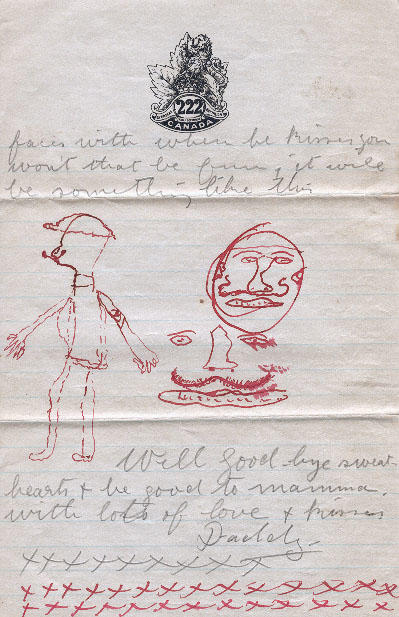 222
CANADA
faces with when he kisses you
wont that be funny, it will
be something like this
Well good-bye sweet-
hearts & be good to mamma.
with lots of love & kisses
Daddy.
x x x x x x x x x
x x x x x x x x x x x x x x x
x x x x x x x x x x x x x x x